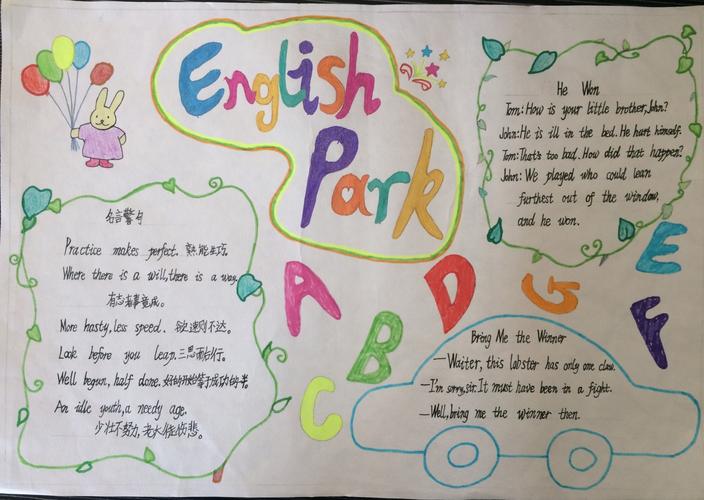 English
Park
He Won
Tom: How is your little brother, John?
John: He is ill in the bed. He hurt himself.
Tom: That's too bad. How did that happen?
John: We played who could lean
furthest out of the window.
and he won.
名言警句
Practice makes perfect. 熟能生巧.
Where there is a will, there is a way.
有志者事竟成。
More hasty, less speed. 欲速则不达。
Look before you leap. 三思而后行。
Well begun, half done. 好的开始等于成功的一半。
An idle youth, a needy age.
少壮不努力,老大徒伤悲。
A
B
C
D
G
E
F
Bring Me the Winner
—Waiter, this lobster has only one claw.
—I'm sorry, sir. It must have been in a fight.
—Well, bring me the winner then.